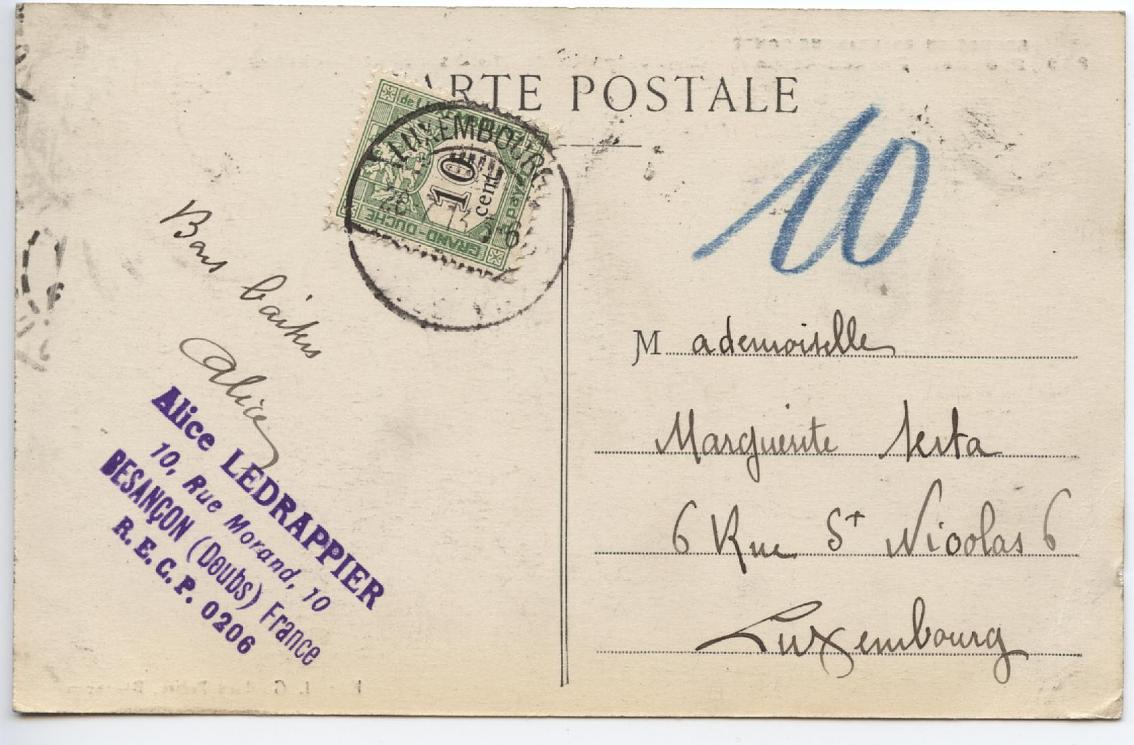 CARTE POSTALE
GRAND-DUCHÉ
10
cent.
LUXEMBOURG
10
Bons baisers
Alice
Alice LEDRAPPIER
10, Rue Morand, 10
BESANÇON (Doubs) France
R. E. C. P. 0206
Mademoiselle
Marguerite
6 Rue St Nicolas 6
Luxembourg